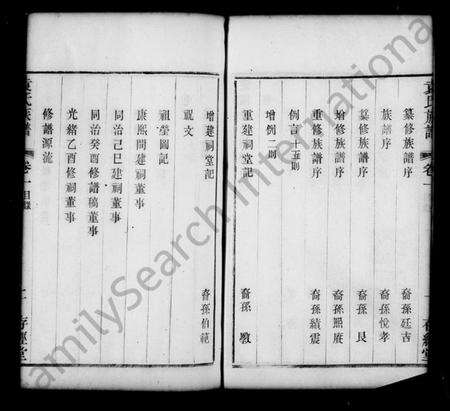 袁氏族譜
卷一
存經堂
纂修族譜序 裔孫廷吉
族譜序 裔孫悅孝
纂修族譜序 裔孫艮
增修族譜序 裔孫熙賡
重修族譜序 裔孫績震
例言十五則
增例二則
重建祠堂記 裔孫敦
增建祠堂記 裔孫伯範
祝文
祖塋圖記
康熙間建祠董事
同治己巳建祠董事
同治癸酉修譜稿董事
光緒乙酉修祠董事
修譜源流
袁氏族譜
卷一
目錄
二
存經堂
FamilySearch International